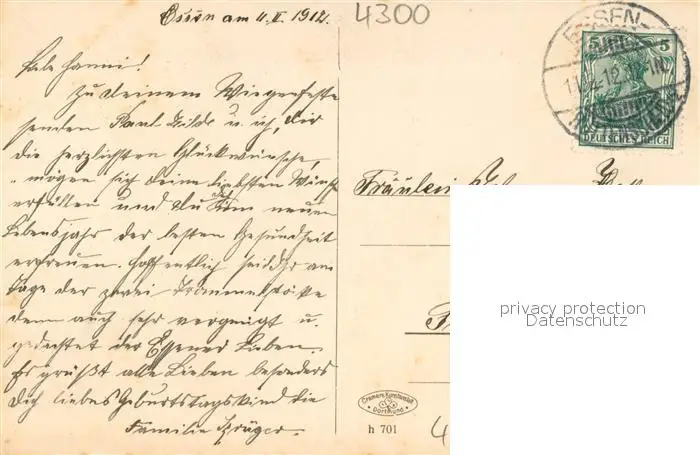 Essen am 11. II. 1912.
4300
Liebe Hanni!
Zu Deinem Wiegenfeste
senden Paul Hilde u. ich, Dir
die herzlichsten Glückwünsche,
mögen sich deine liebsten Wünsche
erfüllen und du Dich im neuen
Lebensjahr der besten Gesundheit
erfreuen. Hoffentlich seid Ihr am
Tage der zwei
denn auch sehr vergnügt u.
gedachtet der Essener Lieben.
Es grüßt alle Lieben besonders
Dich liebes Geburtstagskind die
Familie Krüger.
ESSEN
5 5
DEUTSCHES REICH
Fräulein
privacy protection
Datenschutz
Cramers Kunstanstalt
Dortmund
h 701
4